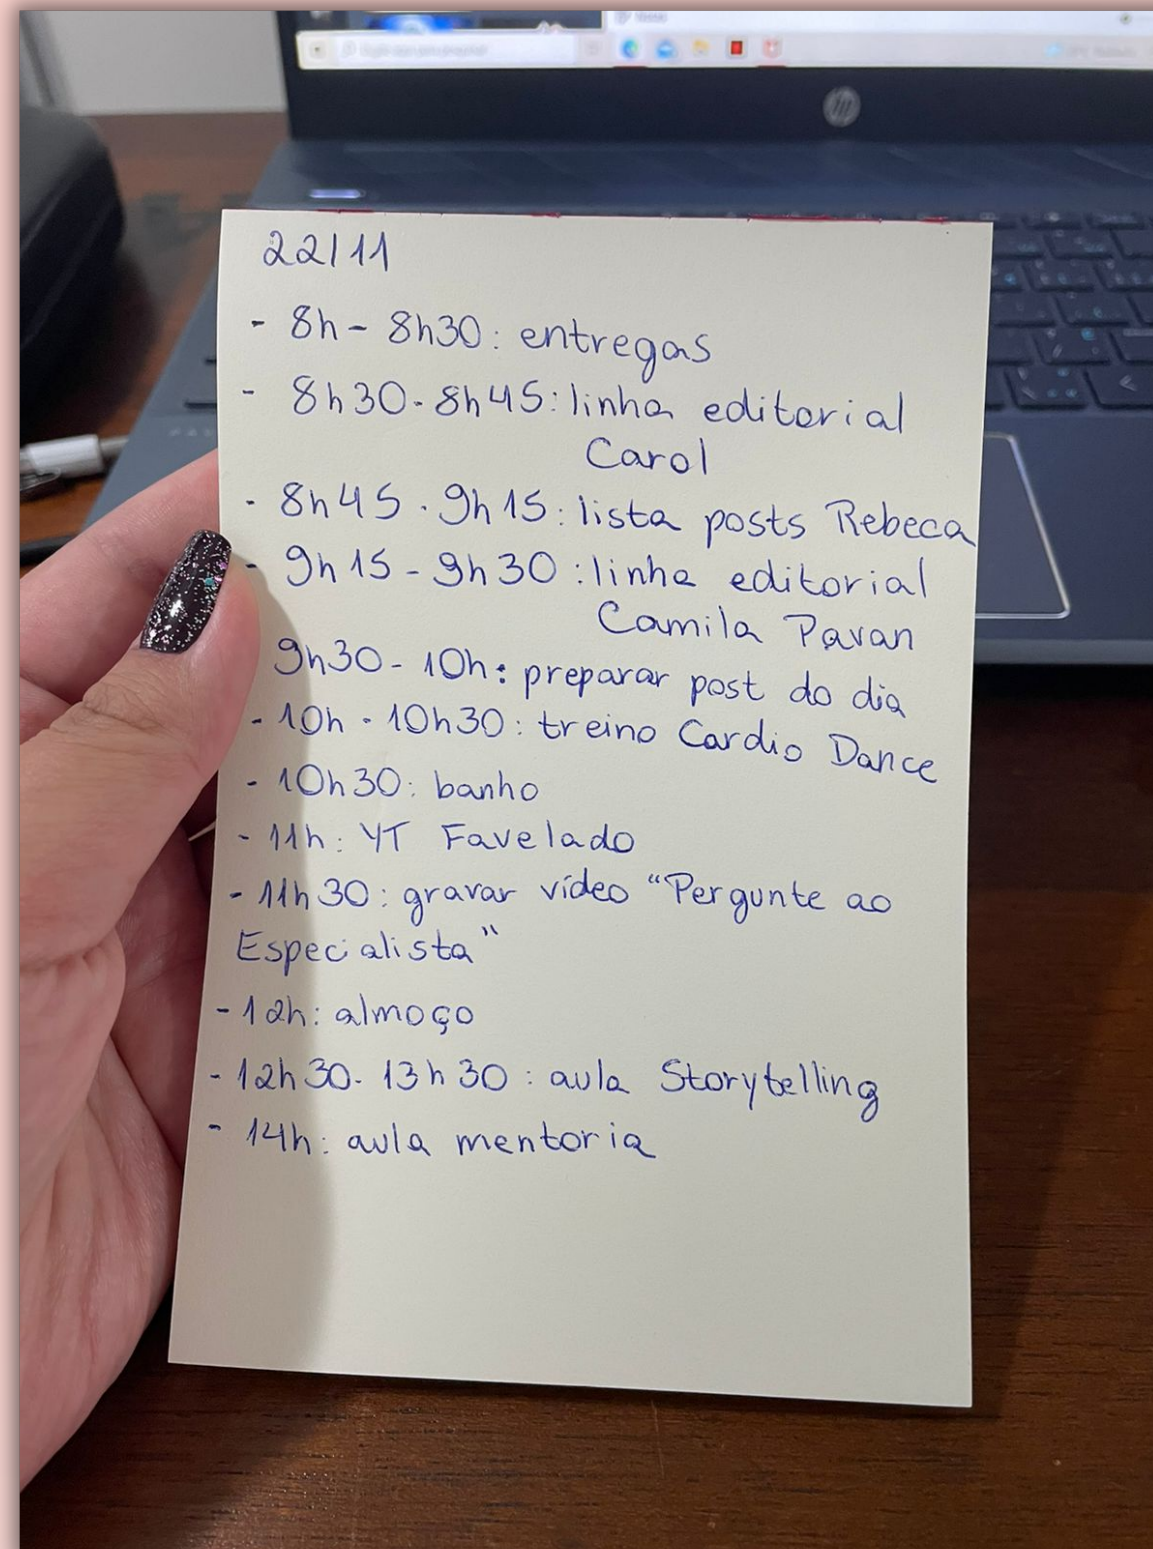 22/11
- 8h - 8h30: entregas
- 8h30 - 8h45: linha editorial
Carol
- 8h45 - 9h15: lista posts Rebeca
- 9h15 - 9h30: linha editorial
Camila Pavan
9h30 - 10h: preparar post do dia
- 10h - 10h30: treino Cardio Dance
- 10h30: banho
- 11h: YT Favelado
- 11h30: gravar vídeo "Pergunte ao
Especialista"
- 12h: almoço
- 12h30 - 13h30: aula Storytelling
- 14h: aula mentoria
hp